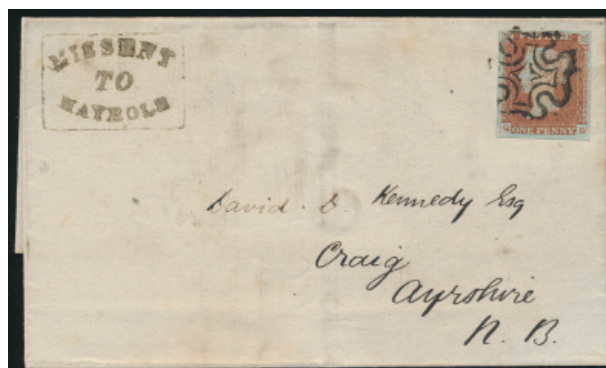 MISSENT
TO
MAYBOLE
ONE PENNY
David. D. Kennedy Esq
Craig
Ayrshire
N. B.